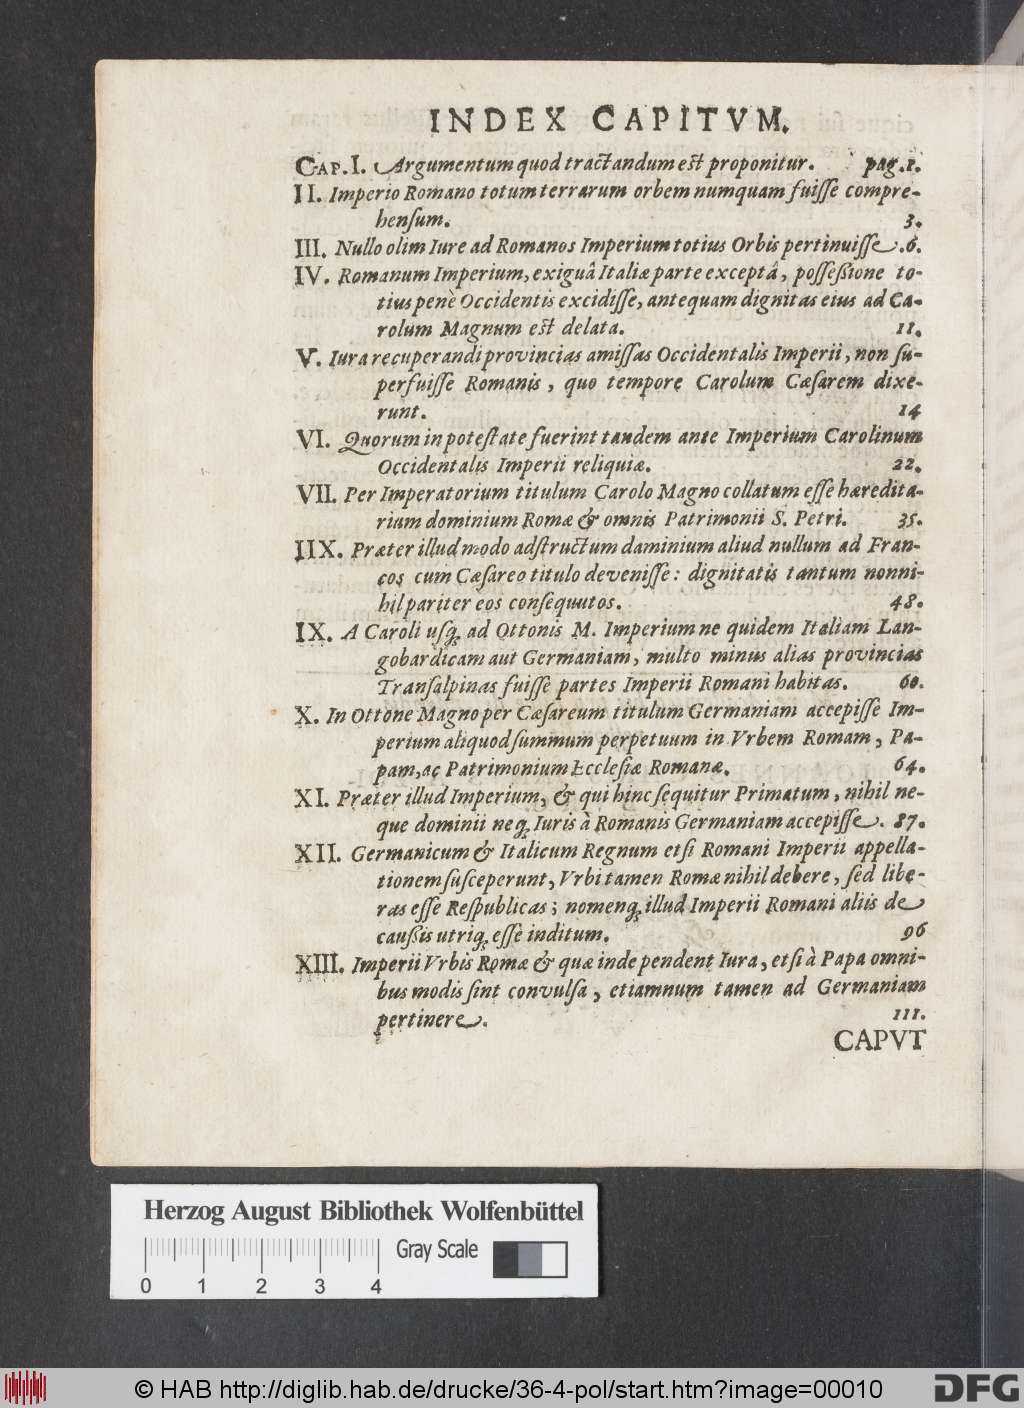 INDEX CAPITVM.
CAP. I. Argumentum quod tractandum est proponitur. pag.1.
II. Imperio Romano totum terrarum orbem numquam fuisse compre-
hensum. 3.
III. Nullo olim Iure ad Romanos Imperium totius Orbis pertinuisse. 6.
IV. Romanum Imperium, exiguâ Italiæ parte exceptâ, possessione to-
tius penè Occidentis excidisse, antequam dignitas eius ad Ca-
rolum Magnum est delata. 11.
V. Iura recuperandi provincias amissas Occidentalis Imperii, non su-
perfuisse Romanis, quo tempore Carolum Cæsarem dixe-
runt. 14
VI. Quorum in potestate fuerint tandem ante Imperium Carolinum
Occidentalis Imperii reliquiæ. 22.
VII. Per Imperatorium titulum Carolo Magno collatum esse hæredita-
rium dominium Romæ & omnis Patrimonii S. Petri. 35.
IIX. Præter illud modo adstructum daminium aliud nullum ad Fran-
cos cum Cæsareo titulo devenisse: dignitatis tantum nonni-
hil pariter eos consequutos. 48.
IX. A Caroli usq; ad Ottonis M. Imperium ne quidem Italiam Lan-
gobardicam aut Germaniam, multo minus alias provincias
Transalpinas fuisse partes Imperii Romani habitas. 60.
X. In Ottone Magno per Cæsareum titulum Germaniam accepisse Im-
perium aliquod summum perpetuum in Vrbem Romam, Pa-
pam, ac Patrimonium Ecclesiæ Romanæ. 64.
XI. Præter illud Imperium, & qui hinc sequitur Primatum, nihil ne-
que dominii neq; Iuris à Romanis Germaniam accepisse. 87.
XII. Germanicum & Italicum Regnum etsi Romani Imperii appella-
tionem susceperunt, Vrbi tamen Romæ nihil debere, sed libe-
ras esse Respublicas; nomenq; illud Imperii Romani aliis de
caussis utriq; esse inditum. 96
XIII. Imperii Vrbis Romæ & quæ inde pendent Iura, etsi à Papa omni-
bus modis sint convulsa, etiamnum tamen ad Germaniam
pertinere. 111.
CAPVT
Herzog August Bibliothek Wolfenbüttel
Gray Scale
0 1 2 3 4
© HAB http://diglib.hab.de/drucke/36-4-pol/start.htm?image=00010
DFG